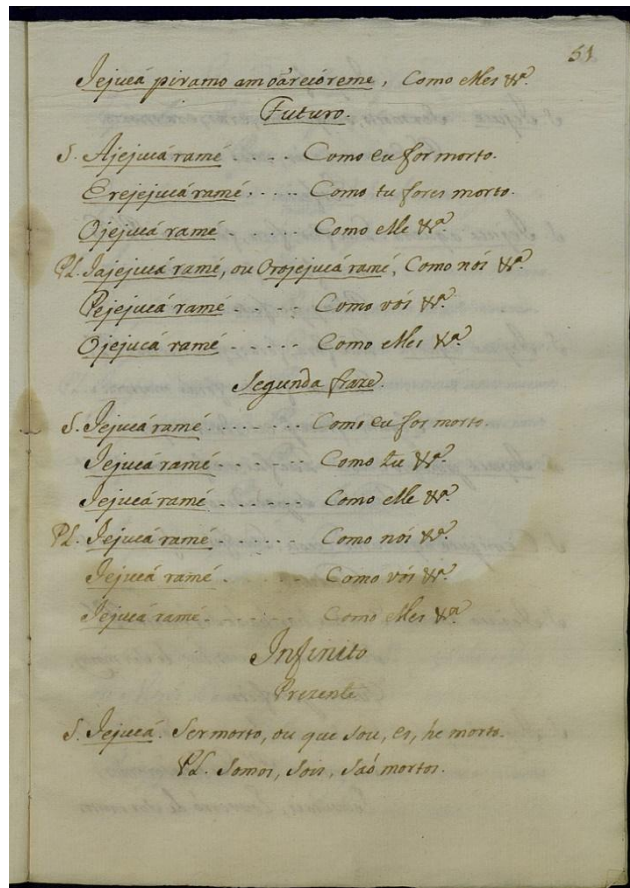 51
Jejucá piramo amoáreióreme, Como elles &ª.
Futuro.
S. Ajejucá ramé ..... Como eu for morto.
Erejejucá ramé, .... Como tu fores morto.
Ojejucá ramé ...... Como elle &ª.
Pl. Iajejucá ramé, ou Orojejucá ramé, Como nós &ª.
Pejejucá ramé ..... Como vós &ª.
Ojejucá ramé ..... Como elles &ª.
Segunda fraze.
S. Jejucá ramé ....... Como eu for morto.
Jejucá ramé ....... Como tu &ª.
Jejucá ramé ....... Como elle &ª.
Pl. Jejucá ramé ....... Como nós &ª.
Jejucá ramé ....... Como vós &ª.
Jejucá ramé ....... Como elles &ª.
Infinito
Prezente
S. Jejucá. Ser morto, ou que sou, es, hé morto.
Pl. Somos, sois, saó mortos.